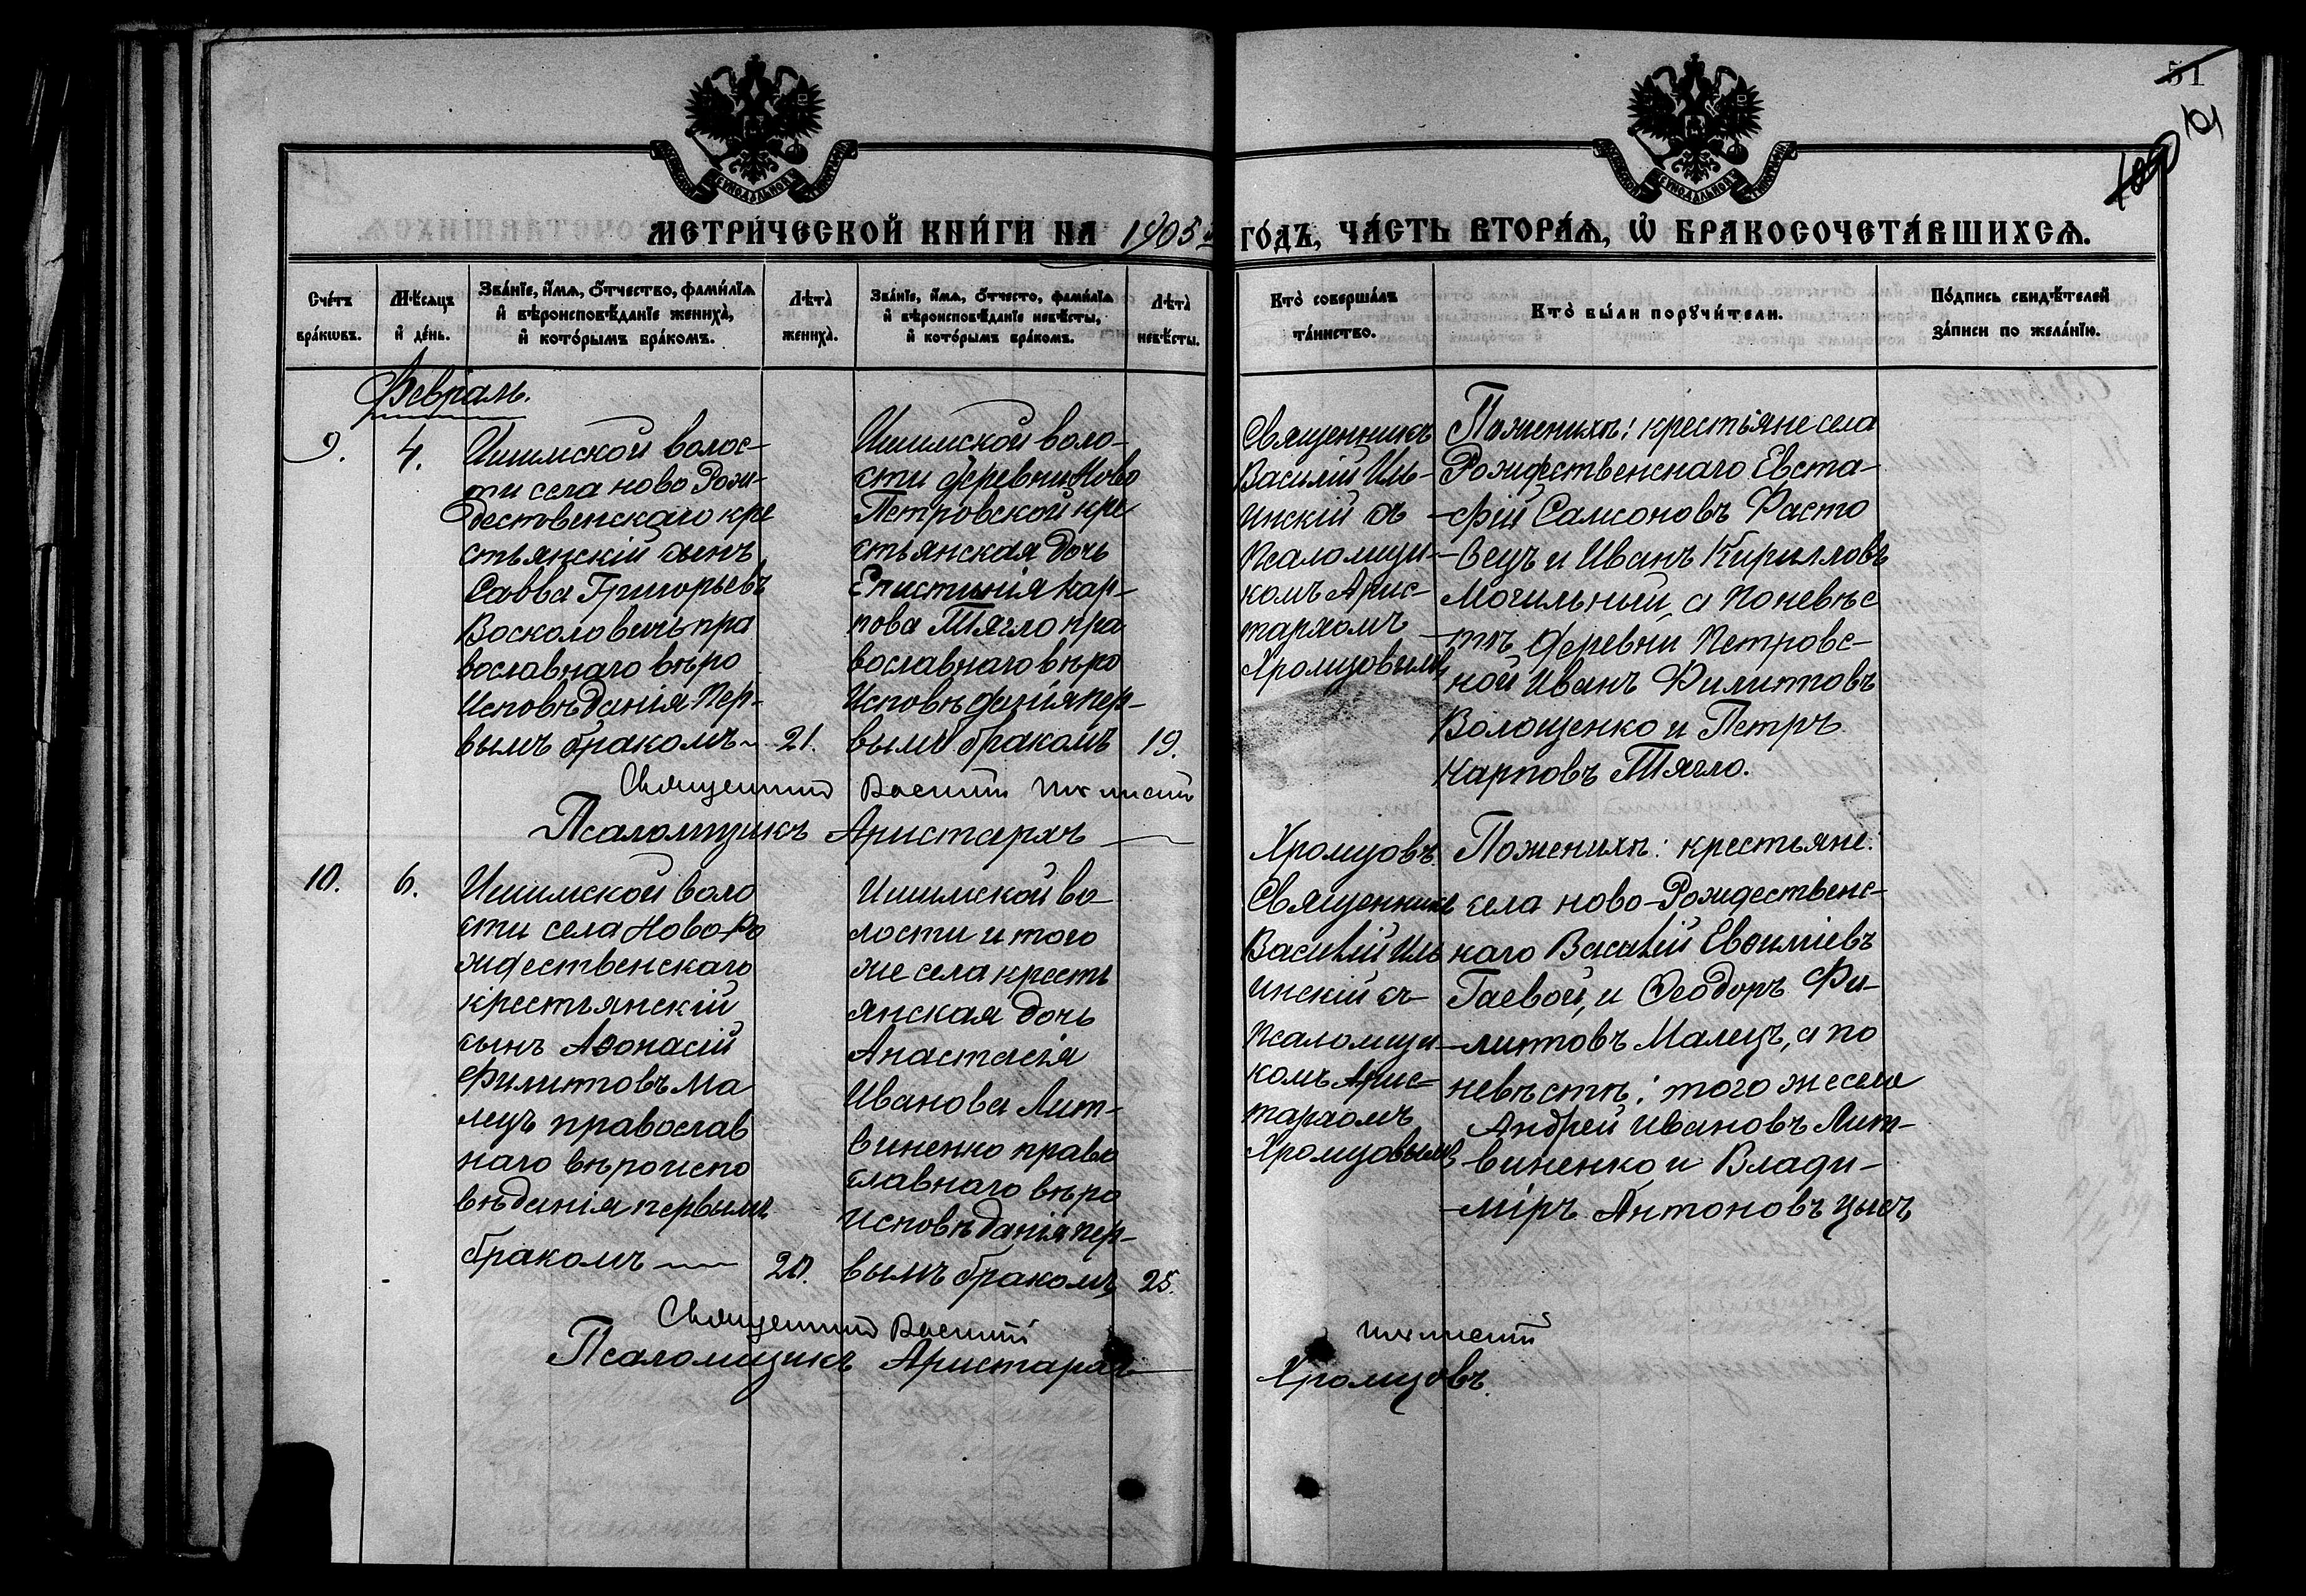 51
101
МЕТРИ́ЧЕСКОЙ КНИ́ГИ НА 1905 й
ГО́ДЪ, ЧА́СТЬ ВТОРА́Ѧ, Ѽ БРАКОСОЧЕТА́ВШИХСѦ.
Сче́тъ
бра́кωвъ.
Мѣ́сѧцъ
и҆ де́нь.
Зва́нїе, и҆́мѧ, ѻ҆́тчество, фами́лїѧ
и҆ вѣроисповѣ́данїе жениха̀,
и҆ кото́рымъ бра́комъ.
Лѣта̀
жениха̀.
Зва́нїе, и҆́мѧ, ѻ҆́тчесто, фами́лїѧ
и҆ вѣроисповѣ́данїе невѣ́сты,
и҆ кото́рымъ бра́комъ.
Лѣта̀
невѣ́сты.
Кто̀ соверша́лъ
та́инство.
Кто̀ бы́ли порꙋчи́тели.
По́дпись свидѣ́телей
за́писи по жела́нїю.
Февраль.
9.
4.
Ишимской волос-
ти села ново Рож-
дественскаго кре
стьянскій сынъ
Савва Григорьевъ
Восколовичь пра
вославнаго вѣро
исповѣданія пер-
вымъ бракомъ
21.
Ишимской воло-
сти деревни Ново
Петровской кре
стьянская дочь
Епистинія Кар-
пова Тягло пра
вославнаго вѣро
исповѣданія пер-
вымъ бракомъ
19.
Священникъ
Василій Иль-
инскій съ
псаломщи-
комъ Арис-
тархомъ
Хромцовымъ
По женихѣ: крестьяне села
Рождественскаго Евста-
-фій Самсоновъ Расто
-вецъ и Иванъ Кирилловъ
Могильный, а по невѣс
-тѣ деревни Петровс-
кой Иванъ Филипповъ
Волощенко и Петръ
Карповъ Тягло.
Священникъ Василій Ильинскій
Псаломщикъ Аристархъ
Хромцовъ.
10.
6.
Ишимской воло
сти села Ново-Ро
ждественскаго
крестьянскій
сынъ Аѳонасій
Филипповъ Ма
лецъ православ
наго вѣроиспо
вѣданія первымъ
бракомъ
20.
Ишимской во
лости и того
же села кресть
янская дочь
Анастасія
Иванова Лит-
виненко право
славнаго вѣро
исповѣданія пер-
вымъ бракомъ
25.
Священникъ
Василій Иль
инскій съ
псаломщи-
комъ Арис-
тархомъ
Хромцовымъ
По женихѣ: крестьяне:
села ново-Рождественс-
каго Василій Евѳиміевъ
Гаевой, и Ѳеодоръ Фи-
-липповъ Малецъ, а по
невѣстѣ: того же села
Андрей Ивановъ Лит-
виненко и Влади-
-міръ Антоновъ
Священникъ Василій
Ильинскій
Псаломщикъ Аристархъ
Хромцовъ.